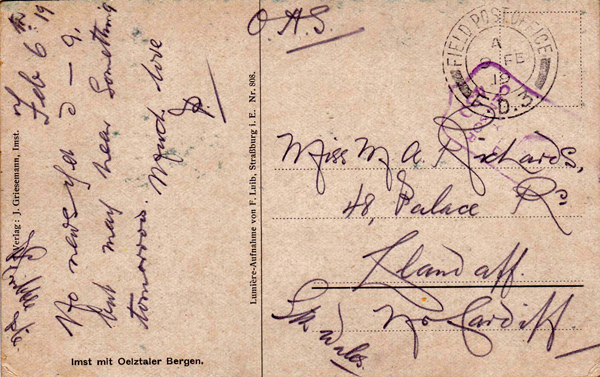 Feb 6th 19
No news yet
but may hear something
tomorrow. Much love
Verlag: J. Griesemann, Imst.
Imst mit Oelztaler Bergen.
Lumière-Aufnahme von F. Laib, Straßburg i. E.: Nr. 808.
O.A.S.
FIELD POST OFFICE
A
FE
19
D.3
Miss M A Richards,
48, Palace Rd
Llandaff.
Nr Cardiff.
Sth Wales